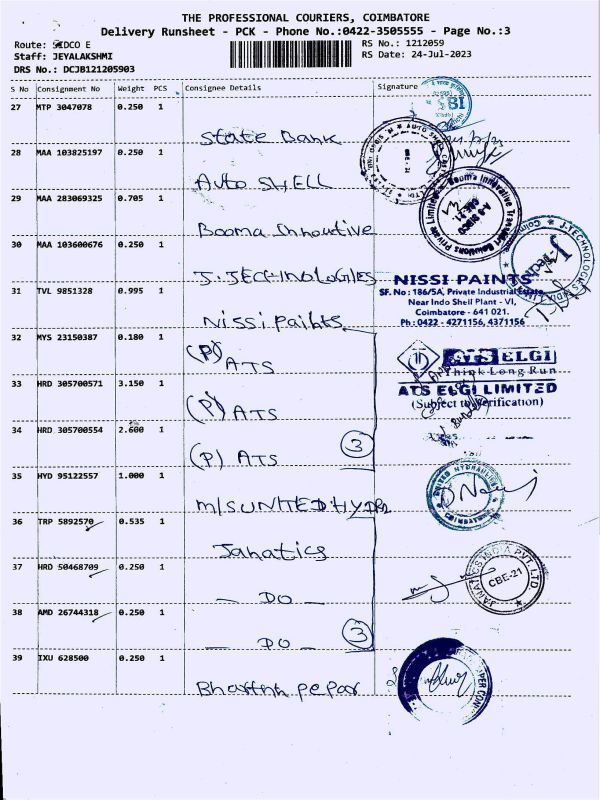 THE PROFESSIONAL COURIERS, COIMBATORE
Delivery Runsheet - PCK - Phone No.:0422-3505555 - Page No.:3
Route: SIDCO E
RS No.: 1212059
Staff: JEYALAKSHMI
RS Date: 24-Jul-2023
DRS No.: DCJB121205903
S No Consignment No Weight PCS Consignee Details Signature
27 MTP 3047078 0.250 1
State Bank
28 MAA 103825197 0.250 1
Auto SHELL
29 MAA 283069325 0.705 1
Booma Innovative
30 MAA 103600676 0.250 1
J. TECHNOLOGIES
NISSI PAINTS
31 TVL 9851328 0.995 1
SF. No : 186/5A, Private Industrial Estate,
Near Indo Shell Plant - VI,
Coimbatore - 641 021.
Ph : 0422 - 4271156, 4371156
Nissi paints
32 MYS 23150387 0.180 1
(P) ATS
ATS ELGI
Think Long Run
33 HRD 305700571 3.150 1
ATS ELGI LIMITED
(Subject to Verification)
(P) ATS
34 HRD 305700554 2.600 1
(P) ATS
3
35 HYD 95122557 1.000 1
M/S UNITED HYDR
36 TRP 5892570 0.535 1
Janatics
JANATICS INDIA PVT. LTD.
CBE-21
37 HRD 50468709 0.250 1
— DO —
38 AMD 26744318 0.250 1
— DO —
3
39 IXU 628500 0.250 1
Bharath pepar